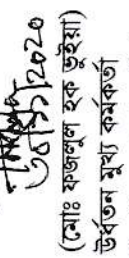 ৩০/১১/২০২০
(মোঃ ফজলুল হক ভূইয়া)
উর্ধতন মুখ্য কর্মকর্তা